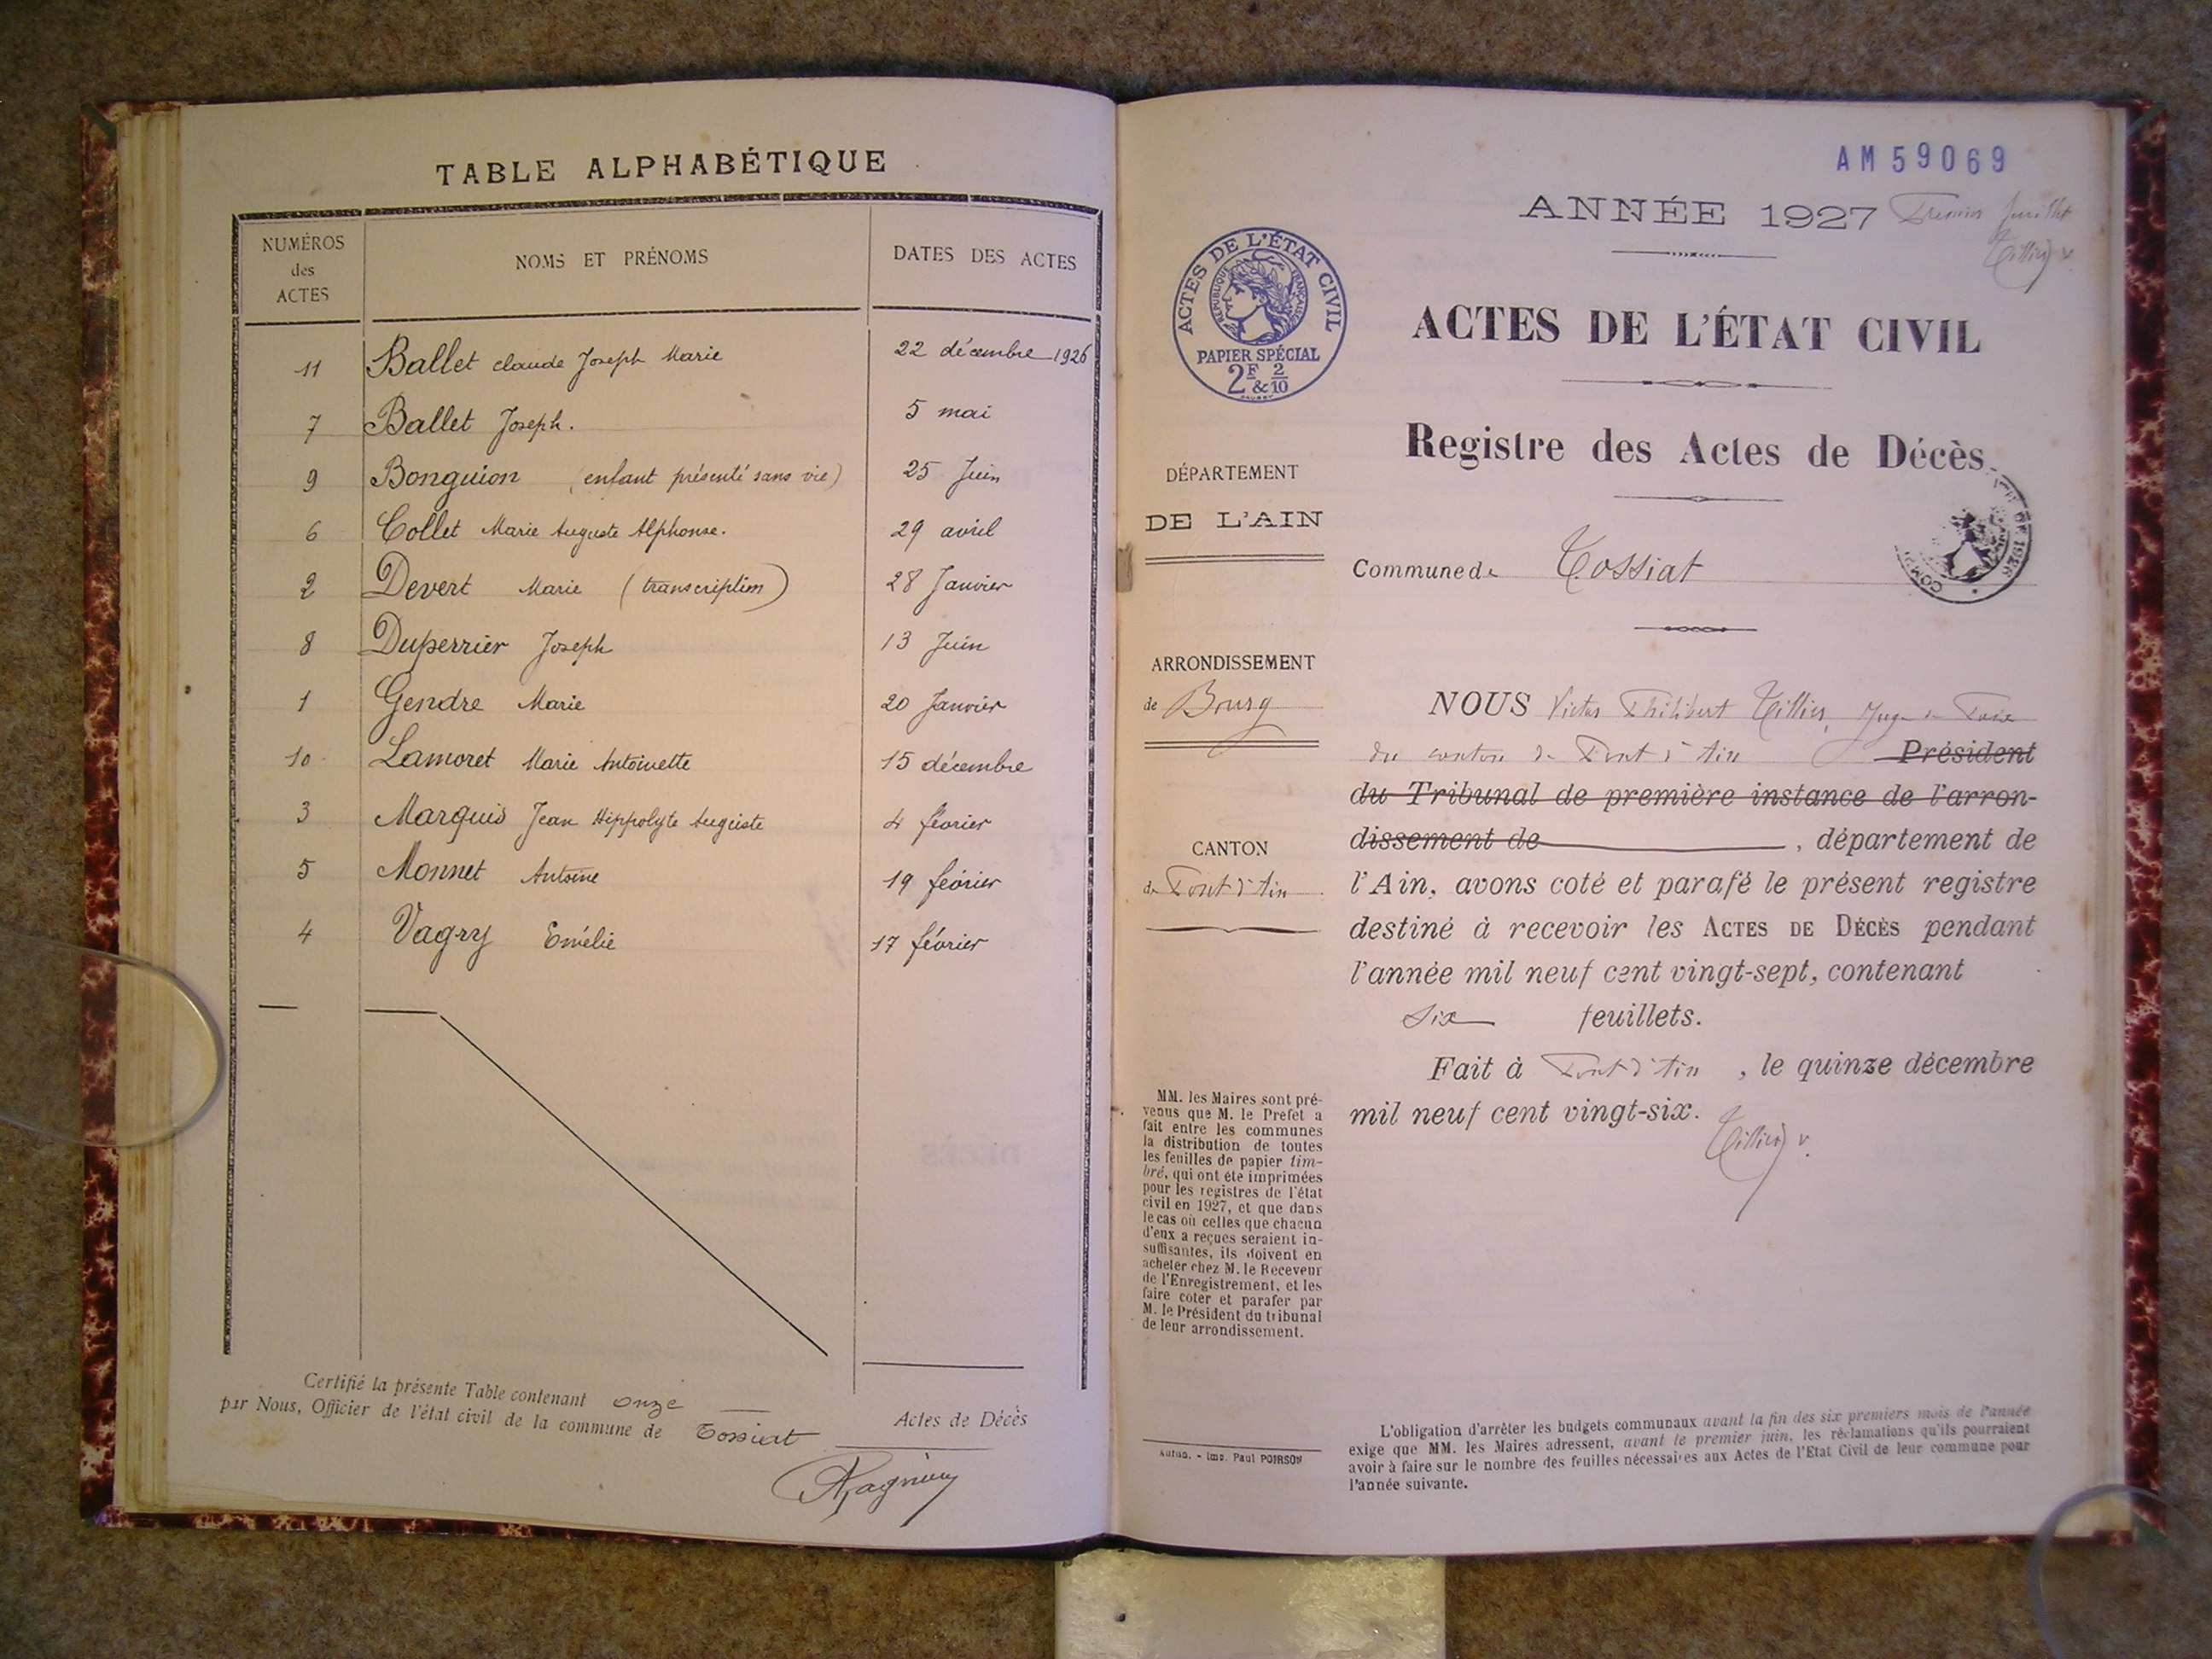 TABLE ALPHABÉTIQUE
NUMÉROS des ACTES
NOMS ET PRÉNOMS
DATES DES ACTES
11 Ballet claude Joseph Marie 22 décembre 1926
7 Ballet Joseph. 5 mai
9 Bonguion (enfant présenté sans vie) 25 Juin
6 Collet Marie Auguste Alphonse. 29 avril
2 Devert Marie (transcription) 28 Janvier
8 Duperrier Joseph 13 Juin
1 Gendre Marie 20 Janvier
10 Lamoret Marie Antoinette 15 décembre
3 Marquis Jean Hippolyte Auguste 4 février
5 Monnet Antoine 19 février
4 Vagry Emélie 17 février
Certifié la présente Table contenant onze Actes de Décès
par Nous, Officier de l'état civil de la commune de Tossiat
AM 59069
ANNÉE 1927 Premier feuillet
Tillier V.
ACTES DE L'ÉTAT CIVIL
RÉPUBLIQUE FRANÇAISE
PAPIER SPÉCIAL
2F & 2/10
ACTES DE L'ÉTAT CIVIL
Registre des Actes de Décès
DÉPARTEMENT
DE L'AIN
Commune de Tossiat
ARRONDISSEMENT
de Bourg
CANTON
de Pont d'Ain
NOUS Victor Philibert Tillier, Juge de Paix
du canton de Pont d'Ain Président
du Tribunal de première instance de l'arron-
dissement de , département de
l'Ain, avons coté et parafé le présent registre
destiné à recevoir les ACTES DE DÉCÈS pendant
l'année mil neuf cent vingt-sept, contenant
Six feuillets.
Fait à Pont d'Ain , le quinze décembre
mil neuf cent vingt-six.
Tillier V.
MM. les Maires sont pré-
venus que M. le Prefet a
fait entre les communes
la distribution de toutes
les feuilles de papier tim-
bré, qui ont été imprimées
pour les registres de l'état
civil en 1927, et que dans
le cas où celles que chacun
d'eux a reçues seraient in-
suffisantes, ils doivent en
acheter chez M. le Receveur
de l'Enregistrement, et les
faire coter et parafer par
M. le Président du tribunal
de leur arrondissement.
Autun. - Imp. Paul POIRSON
L'obligation d'arrêter les budgets communaux avant la fin des six premiers mois de l'année
exige que MM. les Maires adressent, avant le premier juin, les réclamations qu'ils pourraient
avoir à faire sur le nombre des feuilles nécessaires aux Actes de l'Etat Civil de leur commune pour
l'année suivante.